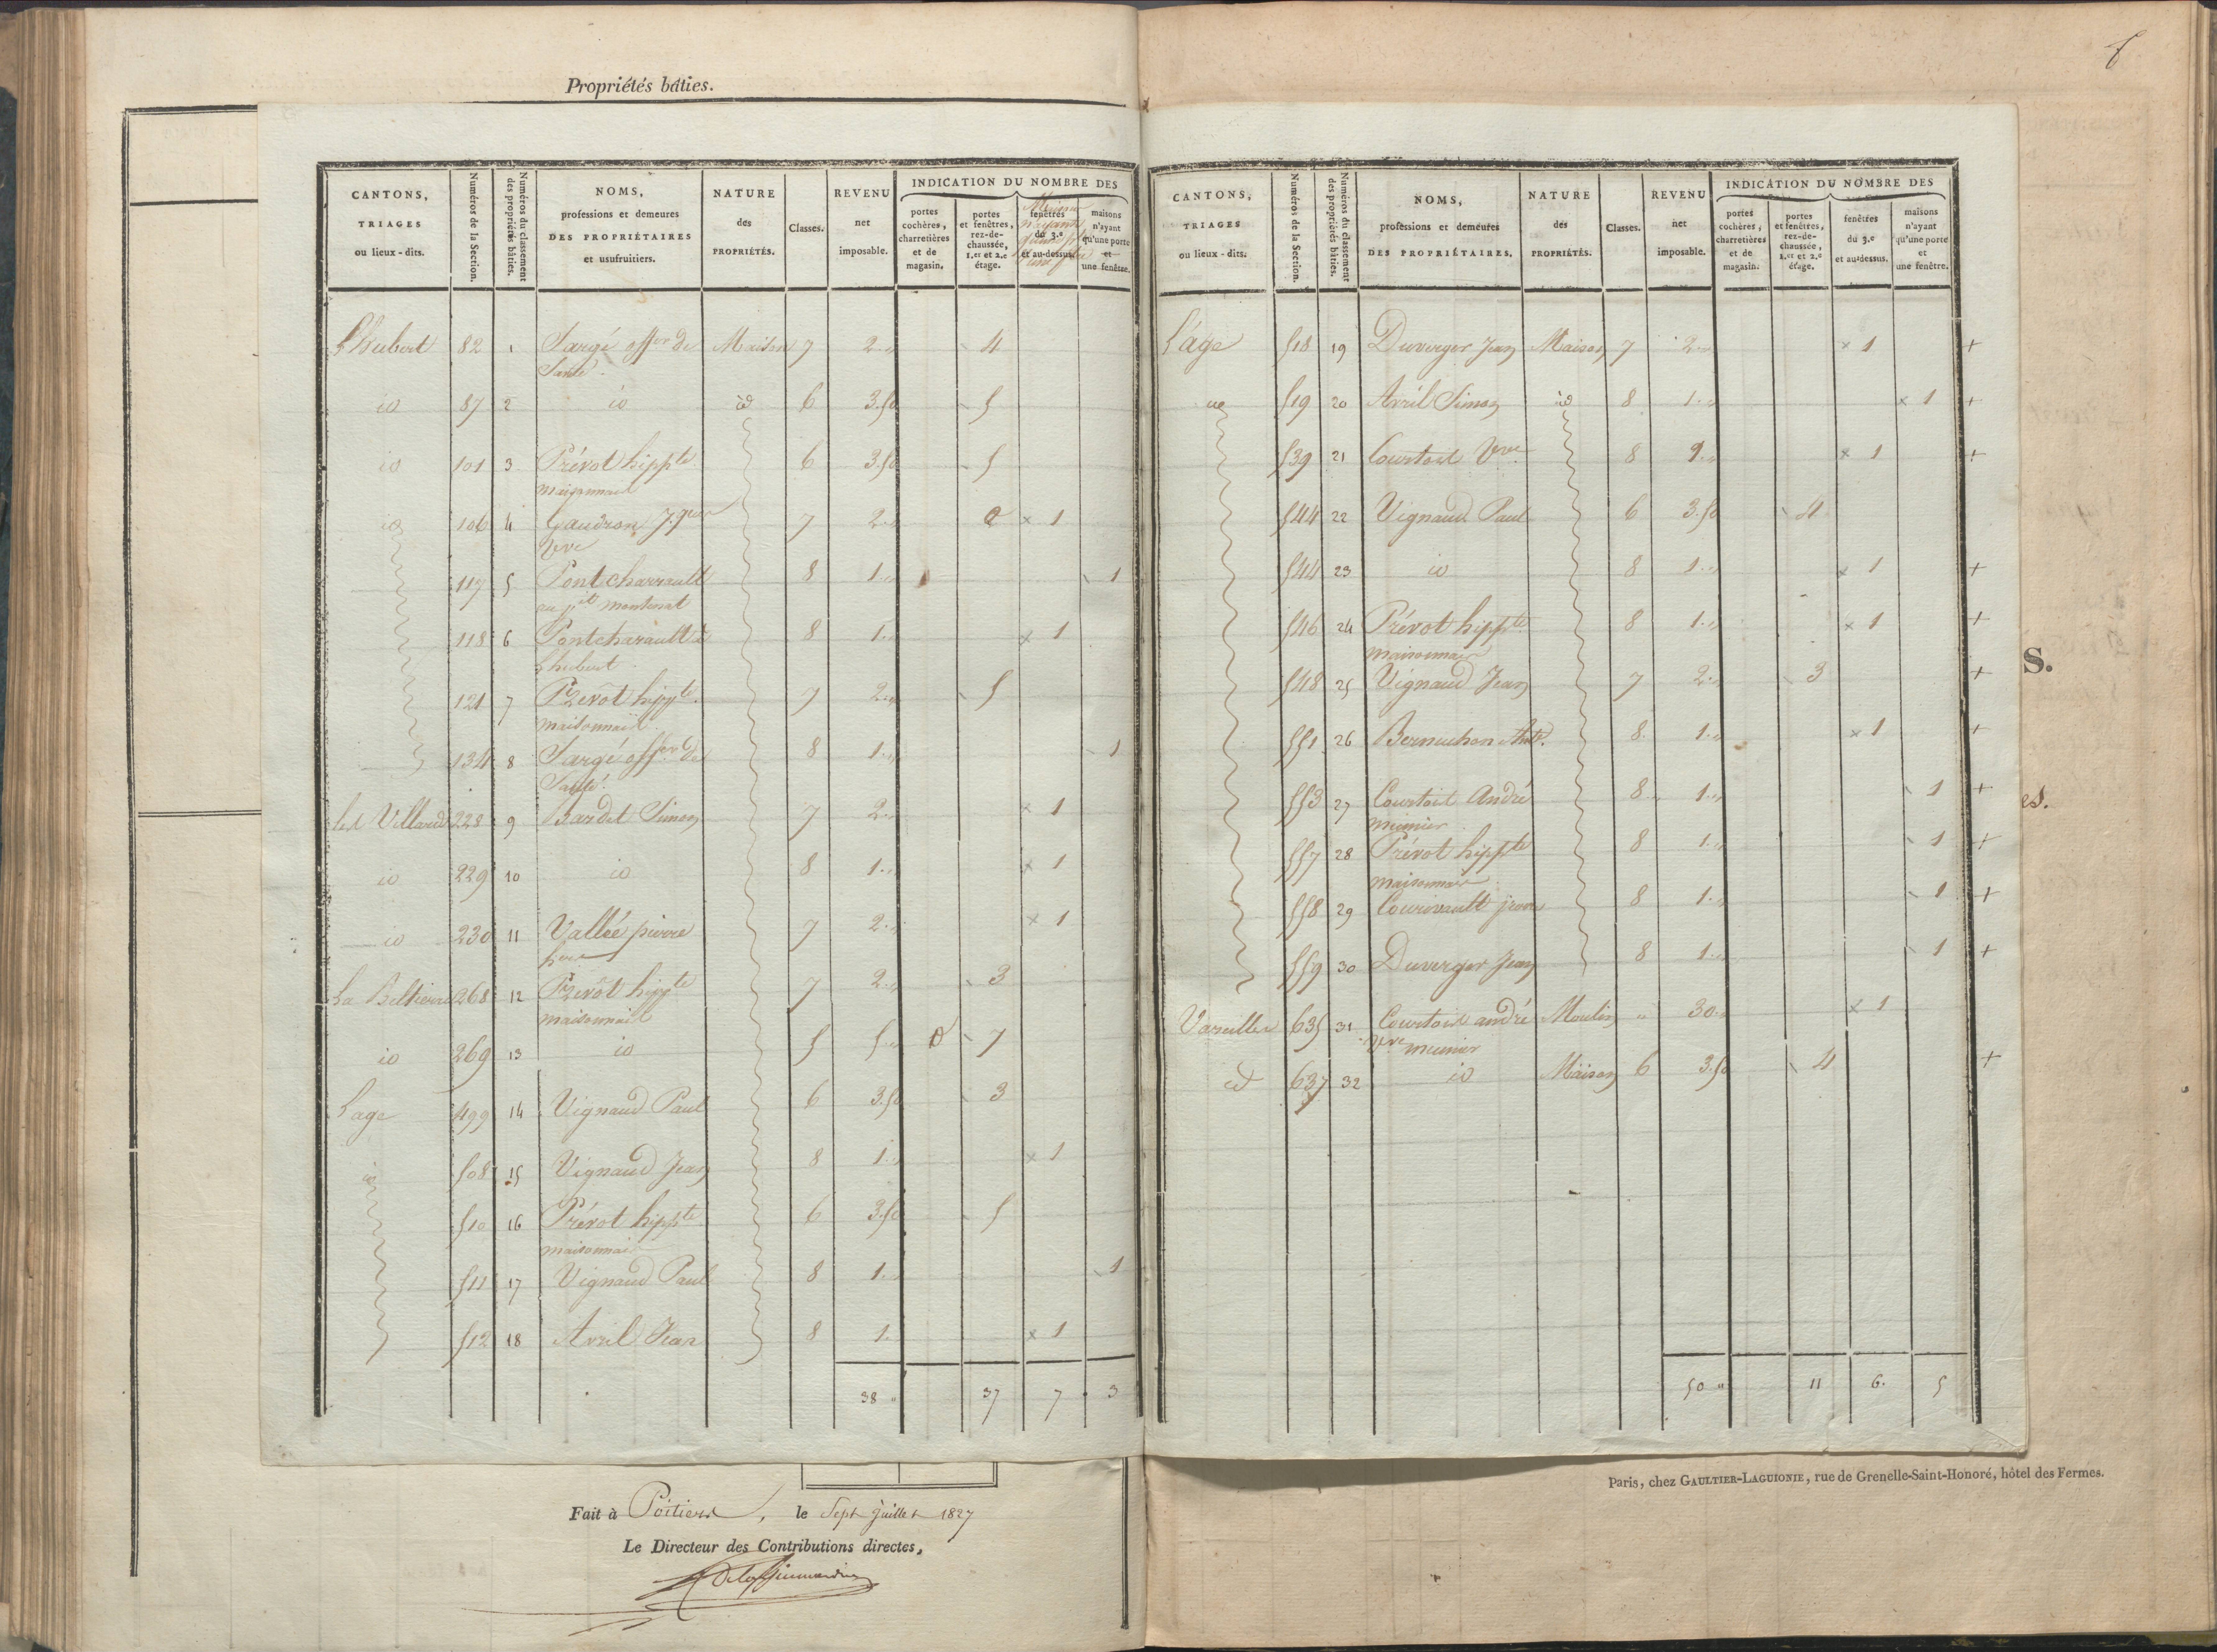 Propriétés bâties.
CANTONS, TRIAGES ou lieux-dits.
Numéros de la Section.
Numéros du classement des propriétés bâties.
NOMS, professions et demeures DES PROPRIÉTAIRES et usufruitiers.
NATURE des PROPRIÉTÉS.
Classes.
REVENU net imposable.
INDICATION DU NOMBRE DES
portes cochères, charretières et de magasin.
portes et fenêtres, rez-de-chaussée, 1.er et 2.e étage.
fenêtres du 3.e et au-dessus.
maisons n'ayant qu'une porte et une fenêtre.
Lhubert 82 1 Sargé offer de Maison 7 2 " 4
Santé
id 87 2 id id 6 3.50 5
id 101 3 Prévot hippte 6 3.50 5
maisonnais
id 106 4 Gaudron 7 2 " 2 x 1
Veve
117 5 Pontcharrault 8 1 " 1
au pit montenat
118 6 Pontcharault à 8 1 " x 1
Lhubert
121 7 Prevôt hippte 7 2 " 5
maisonnais
134 8 Sargé offer de 8 1 " 1
Santé
les Villards 228 9 Bardet Simon 7 2 " x 1
id 229 10 id 8 1 " x 1
id 230 11 Vallée pierre 7 2 " x 1
La 268 12 Prevôt hippte 7 2 " 3
maisonnais
id 269 13 id 5 5 " 7
Lage 499 14 Vignaud Paul 6 3.50 3
id 508 15 Vignaud Jean 8 1 " x 1
510 16 Prévot hippte 6 3.50 5
maisonnais
511 17 Vignaud Paul 8 1 " 1
512 18 Avril Jean 8 1. x 1
38 " 37 7 3
Fait à Poitiers, le Sept juillet 1827
Le Directeur des Contributions directes,
CANTONS, TRIAGES ou lieux-dits.
Numéros de la Section.
Numéros du classement des propriétés bâties.
NOMS, professions et demeures DES PROPRIÉTAIRES.
NATURE des PROPRIÉTÉS.
Classes.
REVENU net imposable.
INDICATION DU NOMBRE DES
portes cochères, charretières et de magasin.
portes et fenêtres, rez-de-chaussée, 1.er et 2.e étage.
fenêtres du 3.e et au-dessus.
maisons n'ayant qu'une porte et une fenêtre.
L'âge 518 19 Duverger Jean Maison 7 2 " x 1 +
519 20 Avril Simon id 8 1 " x 1 +
539 21 Courtois Veve 8 1 " x 1 +
544 22 Vignaud Paul 6 3.50 4
544 23 id 8 1 " x 1 +
546 24 Prévot hippte 8 1 " x 1 +
maisonnais
548 25 Vignaud Jean 7 2 " 3 +
551 26 Bernuchon Ante. 8 1 " x 1 +
553 27 Courtois André 8 1 " 1 +
meunier
557 28 Prévot hippte 8 1 " 1 +
maisonnais
558 29 8 1 " 1 +
559 30 Duverger Jean 8 1 " 1 +
635 31 Courtois andré Moulin " 30 " x 1
meunier
id 637 32 id Maison 6 3.50 4 +
50 " 11 6. 5
S.
es.
Paris, chez GAULTIER-LAGUIONIE, rue de Grenelle-Saint-Honoré, hôtel des Fermes.